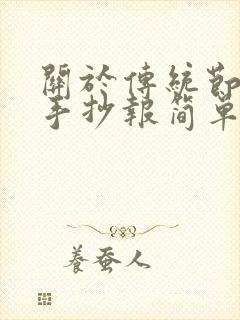 關於傳統節
手抄報简單
養蚕人